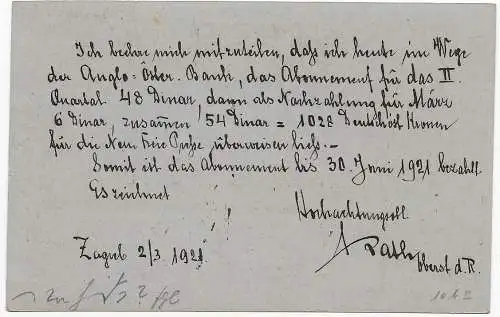 Ich beehre mich mitzuteilen, daß ich heute im Wege
der Anglo-Öster. Bank, das Abonnement für das II
Quartal 48 Dinar, dann als Nachzahlung für März
6 Dinar, zusamen 54 Dinar = 1028 Deutschöst Kronen
für die Neue Freie Presse überweisen ließ.-
Somit ist das Abonnement bis 30 Juni 1921 bezahlt.
Es zeichnet
Hochachtungsvoll
Zagreb 2/3 1921.
Oberst d. R.